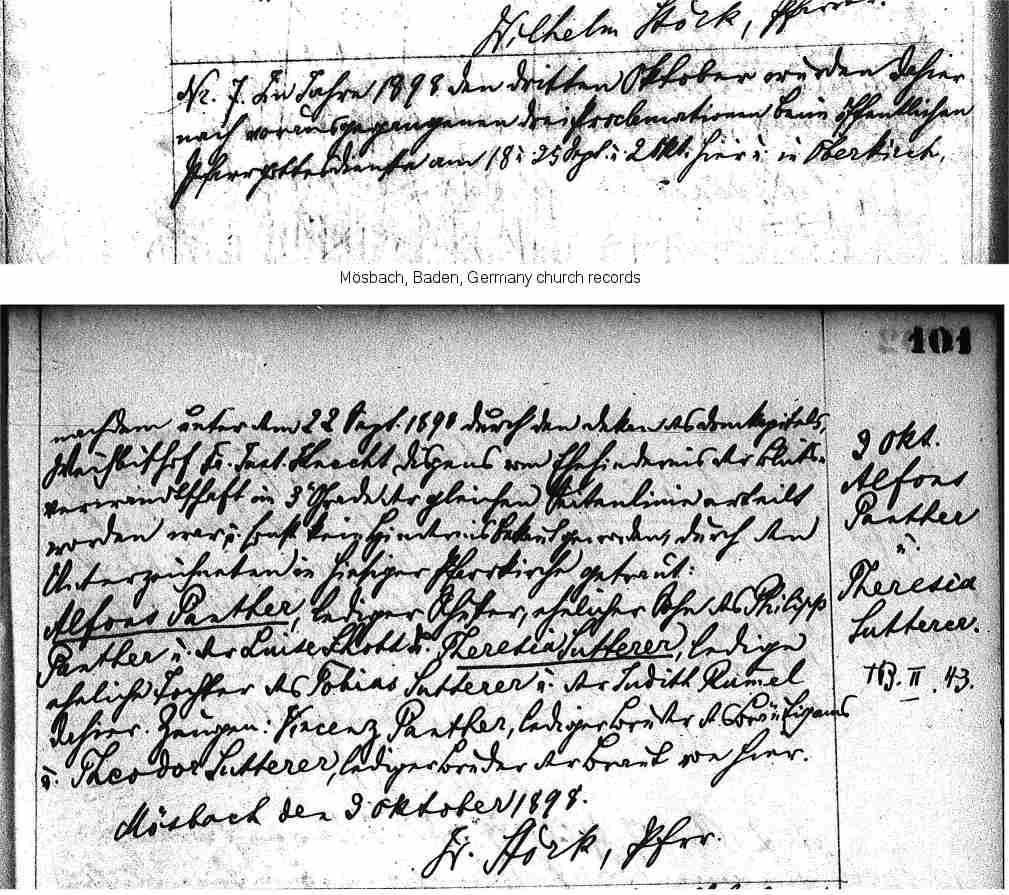 Wilhelm Störk, Pfarrer.
Nr. 7. Im Jahre 1898 den dritten Oktober wurden dahier
nach vorausgegangenen drei Proclamationen beim öffentlichen
Pfarrgottesdienste am 18 u. 25 Sept. u. 2 Okt. hier u. in Oberkirch,
Mösbach, Baden, Germany church records
101
nachdem unterdem 22 Sept. 1898 durch den Dekan des Domkapitels,
Weihbischof Dr. Just. Knecht Dispens vom Ehehindernis der Bluts-
verwandtschaft im 3 Grade der gleichen Seitenlinie erteilt
worden war u. sonst kein Hindernis bekannt geworden, durch den
Unterzeichneten in hiesiger Pfarrkirche getraut:
Alfons Panther, lediger Schäfer, ehelicher Sohn des Philipp
Panther u. der Luise u. Theresia Sutterer, ledige
eheliche Tochter des Tobias Sutterer u. der Judith Rumel
dahier. Zeugen: Vincenz Panther, lediger Bruder des Bräutigams
u. Theodor Sutterer, lediger Bruder der Braut von hier.
Mösbach den 3 Oktober 1898.
Störk, Pfrr.
3 Okt.
Alfons
Panther
u.
Theresia
Sutterer.
II. 43.